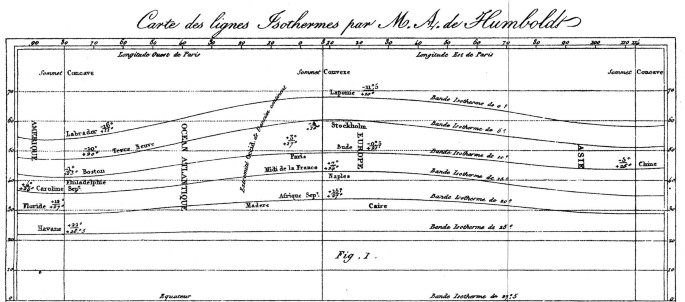 Carte des lignes Isothermes par M. A. de Humboldt
90 80 70 60 50 40 30 20 10 0 10 20 30 40 50 60 70 80 90 100 110
Longitude Ouest de Paris
Longitude Est de Paris
Sommet Concave
Sommet Convexe
Sommet Concave
Laponie
Bande Isotherme de 0°
AMERIQUE
Labrador
Terre Neuve
OCEAN ATLANTIQUE
Stockholm
Bande Isotherme de 5°
Bude
EUROPE
Paris
Bande Isotherme de 10°
ASIE
Chine
Boston
Philadelphie
Midi de la France
Naples
Bande Isotherme de 15°
Caroline Sep.
Afrique Sep.
Floride
Madere
Caire
Bande Isotherme de 20°
Havane
Bande Isotherme de 25°
Fig. 1.
Equateur
Bande Isotherme de 27°.5